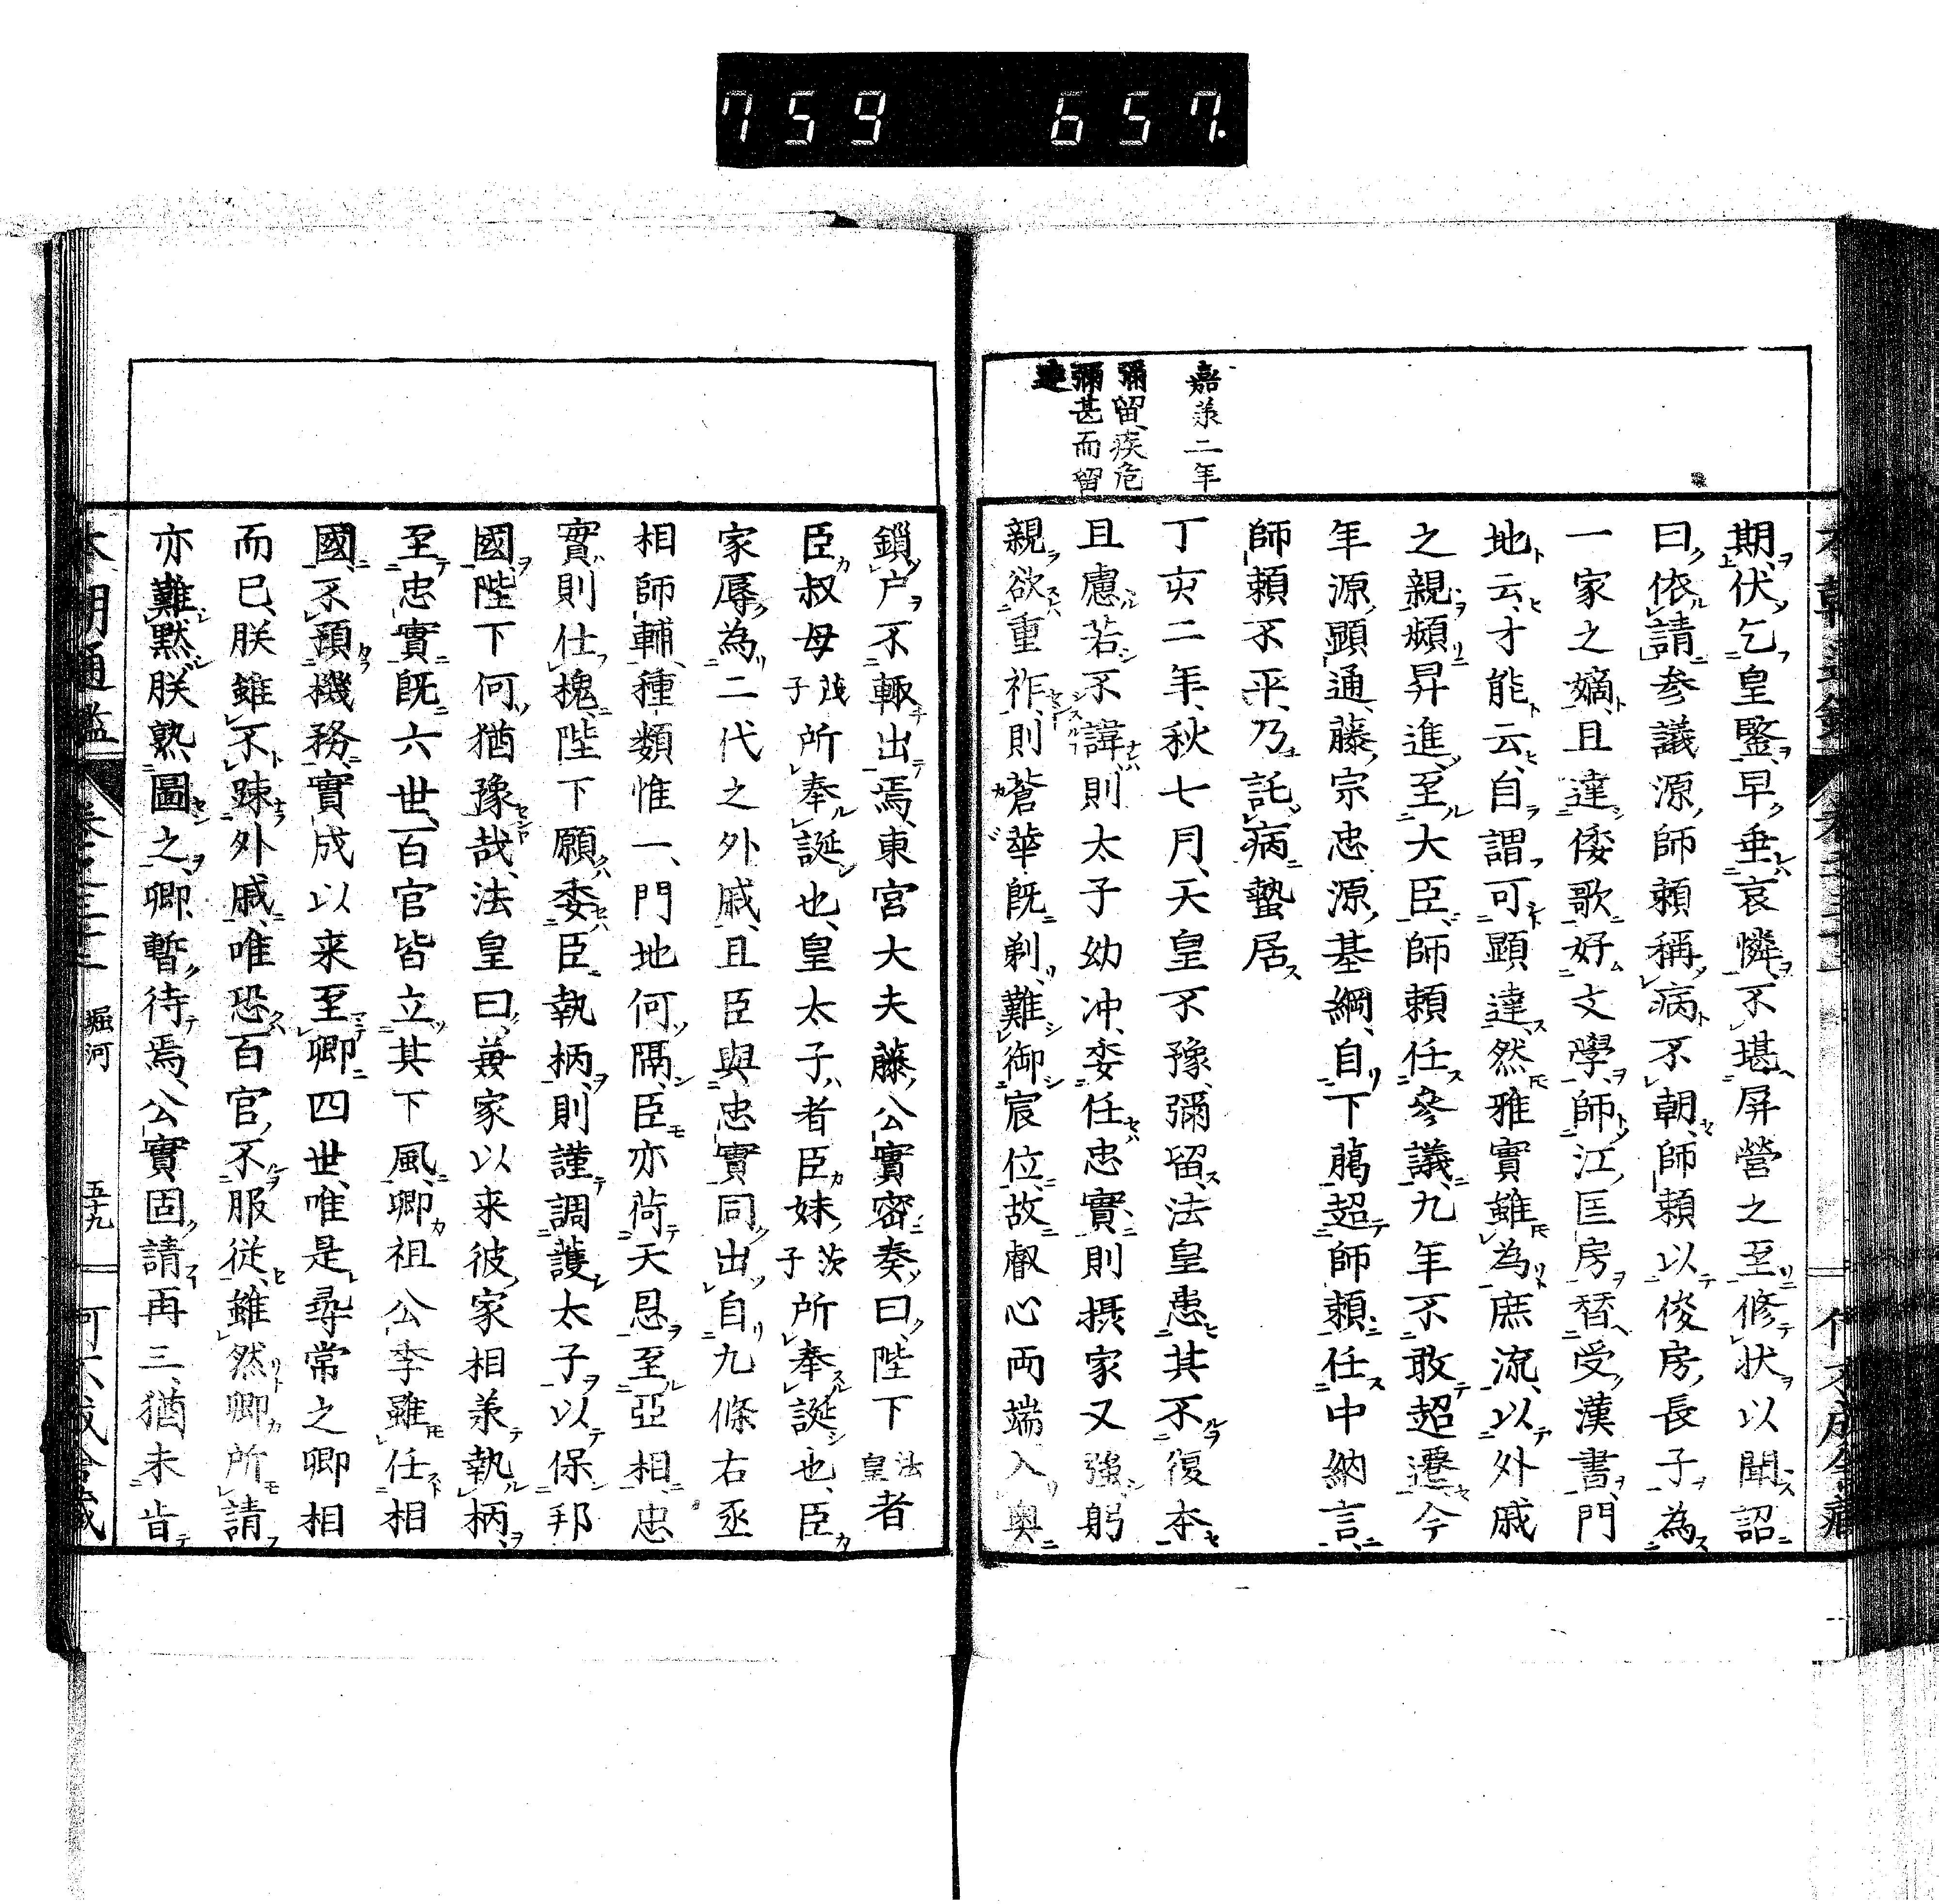 759 657.
嘉羕二年
彌留疾危
彌甚而留
連
期伏乞皇鑒早垂哀憐不堪屏營之至修状以聞詔
曰依請参議源師頼稱病不朝師頼以俊房長子為
一家之嫡且達倭歌好文學師江匡房替受漢書門
地云才能云自謂可顕達然雅實雖為庶流以外戚
之親頻昇進至大臣師頼任參議九年不敢超遷今
年源顕通藤宗忠源基綱自下﨟超師頼任中納言
師頼不平乃託病蟄居
丁亥二年秋七月天皇不豫彌留法皇患其不復本
且慮若不諱則太子幼冲委任忠實則摂家又強躬
親欲重祚則蒼華既剃難御宸位故叡心両端入奥
鎖户不輙出焉東宮大夫藤公實密奏曰陛下法皇者
臣叔母茂子所奉誕也皇太子者臣妹茨子所奉誕也臣
家辱為二代之外戚且臣與忠實同出自九條右丞
相師輔種類惟一門地何隔臣亦荷天恩至亞相忠
實則仕槐陛下願委臣執柄則謹調護太子以保邦
國陛下何猶豫哉法皇曰兼家以来彼家相羕執柄
至忠實既六世百官皆立其下風卿祖公季雖任相
國不預機務實成以来至卿四世唯是尋常之卿相
而已朕雖不踈外戚唯恐百官不服従雖然卿所請
亦難黙朕熟圖之卿暫待焉公實固請再三猶未肯
本朝通鑑
堀河
五十九